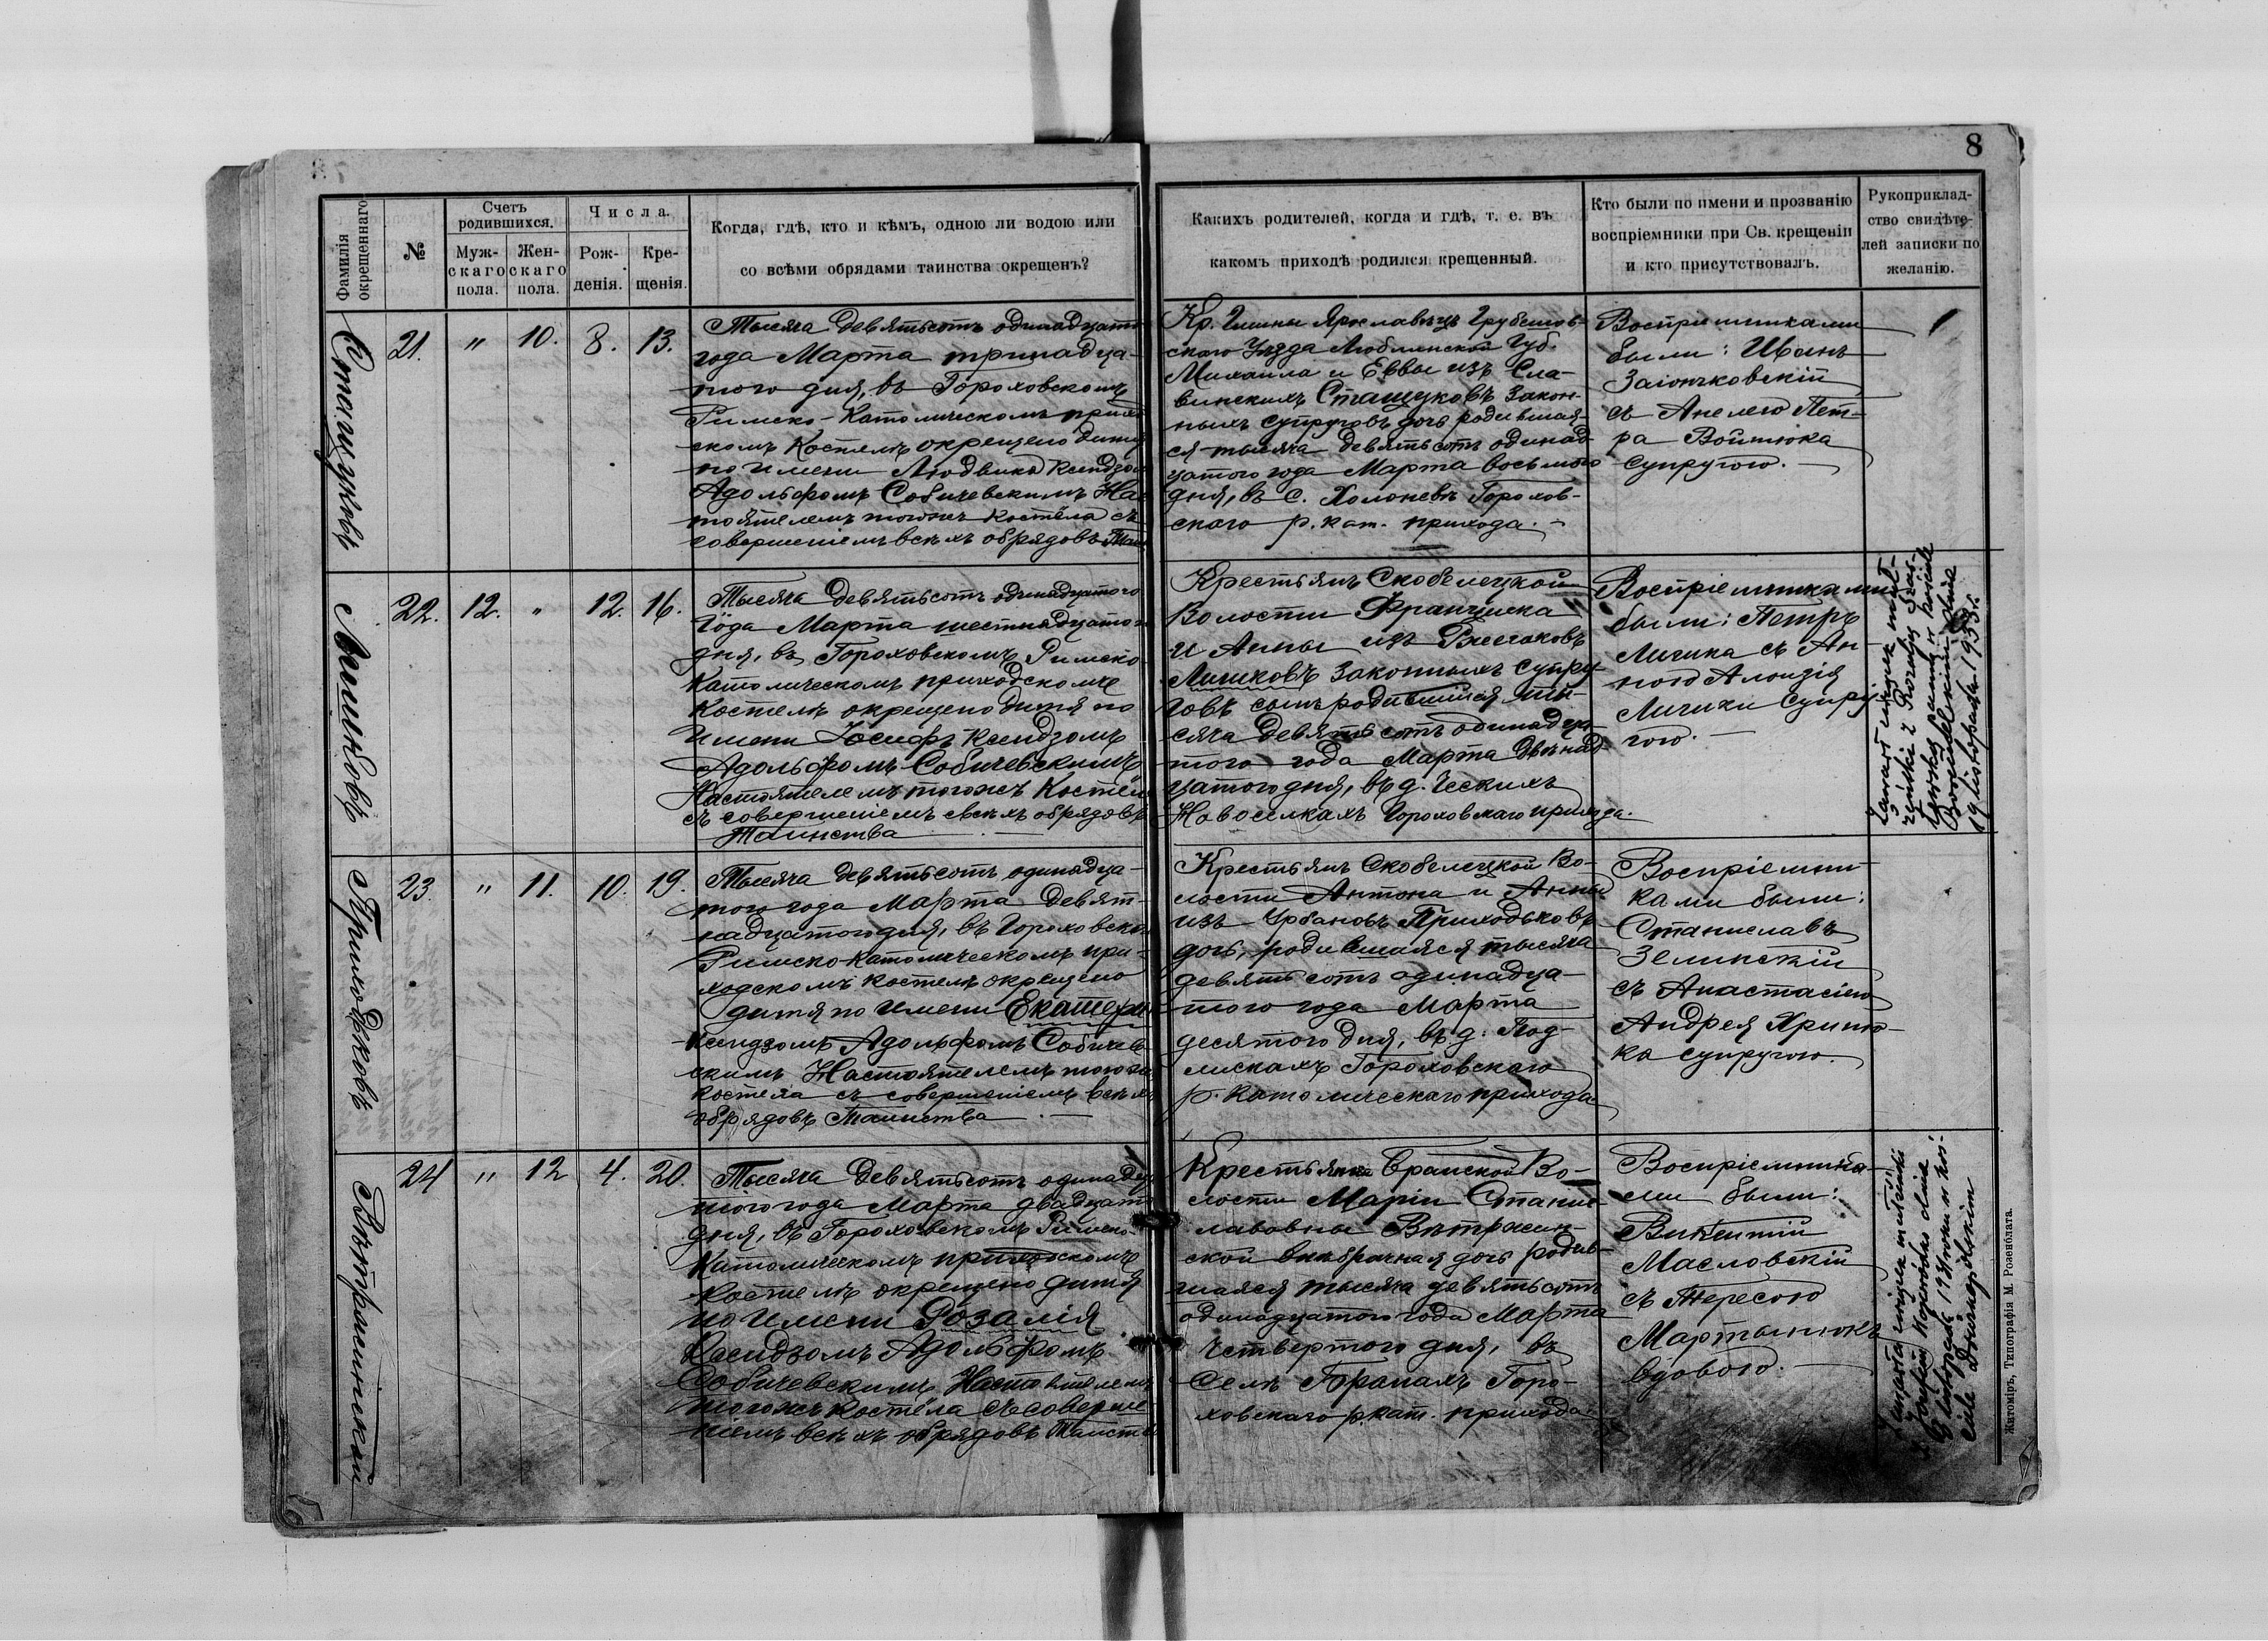 8
Фамилія окрещеннаго
№
Счетъ родившихся.
Муж-
скаго
пола.
Жен-
скаго
пола.
Числа.
Рож-
денія.
Кре-
щенія.
Когда, гдѣ, кто и кѣмъ, одною ли водою или
со всѣми обрядами таинства окрещенъ?
Какихъ родителей, когда и гдѣ, т. е. въ
какомъ приходѣ родился крещенный.
Кто были по имени и прозванію
воспріемники при Св. крещеніи
и кто присутствовалъ.
Рукоприклад-
ство свидѣте-
лей записки по
желанію.
Стащуковъ
21.
"
10.
8.
13.
Тысяча девятьсотъ одинадцато
года Марта тринадца-
того дня, въ Гороховскомъ
Римско-Католическомъ приход
скомъ Костелѣ окрещено дитя
по имени Людвика Ксендзом
Адольфомъ Собичевскимъ Нас
тоятелемъ тогожъ Костёла съ
совершеніемъ всѣхъ обрядовъ Таин
Кр. Гмины Ярославецъ Грубешов-
скаго Уѣзда Люблинской Губ.
Михаила и Еввы изъ Сла-
винскихъ Стащуковъ закон-
ныхъ супруговъ дочь родившая-
ся тысяча девятьсотъ одинад-
цатого года Марта восьмого
дня, въ с. Холоневѣ Горохов-
скаго р. кат. прихода.
Воспріемниками
были: Иванъ
Заіончковскій
съ Анелею Пет-
ра Войтюка
супругою.
Лишковъ
22.
12.
"
12.
16.
Тысяча девятьсотъ одинадцатого
года Марта шестнадцатого
дня, въ Гороховскомъ Римско-
Католическомъ приходскомъ
Костелѣ окрещено дитя по
имени Іосифъ Ксендзомъ
Адольфомъ Собичевскимъ
Настоятелемъ тогожъ Костёла
съ совершеніемъ всѣхъ обрядовъ
Таинства
Крестьянъ Скобелецкой
Волости Францишка
и Анны изъ
Лишковъ законныхъ супру-
говъ сынъ родившійся ты-
сяча девятьсотъ одинадца-
того года Марта двѣнад-
цатого дня, въ д. Ческихъ
Новоселкахъ Гороховскаго прихода.
Воспріемниками
были: Петръ
Личика съ Ан-
ною Алоизія
Личики супру-
гою.
19 listopada 1933 r.
Приходьковъ
23.
"
11.
10.
19.
Тысяча девятьсотъ одинадца-
того года Марта девят-
надцатого дня, въ Гороховском
Римско-католическомъ при-
ходскомъ костелѣ окрещено
дитя по имени Екатерин
Ксендзомъ Адольфомъ Собичев
скимъ Настоятелемъ тогожъ
костёла съ совершеніемъ всѣхъ
обрядовъ Таинства
Крестьянъ Скобелецкой Во-
лости Антона и Анны
изъ Урбановъ Приходьковъ
дочь, родившаяся тысяча
девятьсотъ одинадца-
того года Марта
десятого дня, въ д. Под-
лискахъ Гороховскаго
р. католическаго прихода
Воспріемни-
ками были:
Станиславъ
Зелинскій
съ Анастасіею
Андрея Хриню-
ка супругою.
Вѣтрженской
24
"
12
4.
20.
Тысяча девятьсотъ одинадца
того года Марта двадцато
дня, въ Гороховскомъ Римско-
Католическомъ приходскомъ
костелѣ окрещено дитя
по имени Розалія
Ксендзомъ Адольфомъ
Собичевскимъ Настоятелемъ
тогожъ костёла съ соверше-
ніемъ всѣхъ обрядовъ Таинств
Крестьянки Бранской Во-
лости Маріи Станис-
лавовны
ской внѣбрачная дочь родив-
шаяся тысяча девятьсотъ
одинадцатого года Марта
четвертого дня, въ
селѣ Боранахъ Горо-
ховскаго р. кат. прихода.
Воспріемника-
ми были:
Викентій
Масловскій
съ Тересою
Мартынюкъ
вдовою.
Житоміръ, Типографія М. Розенблата.